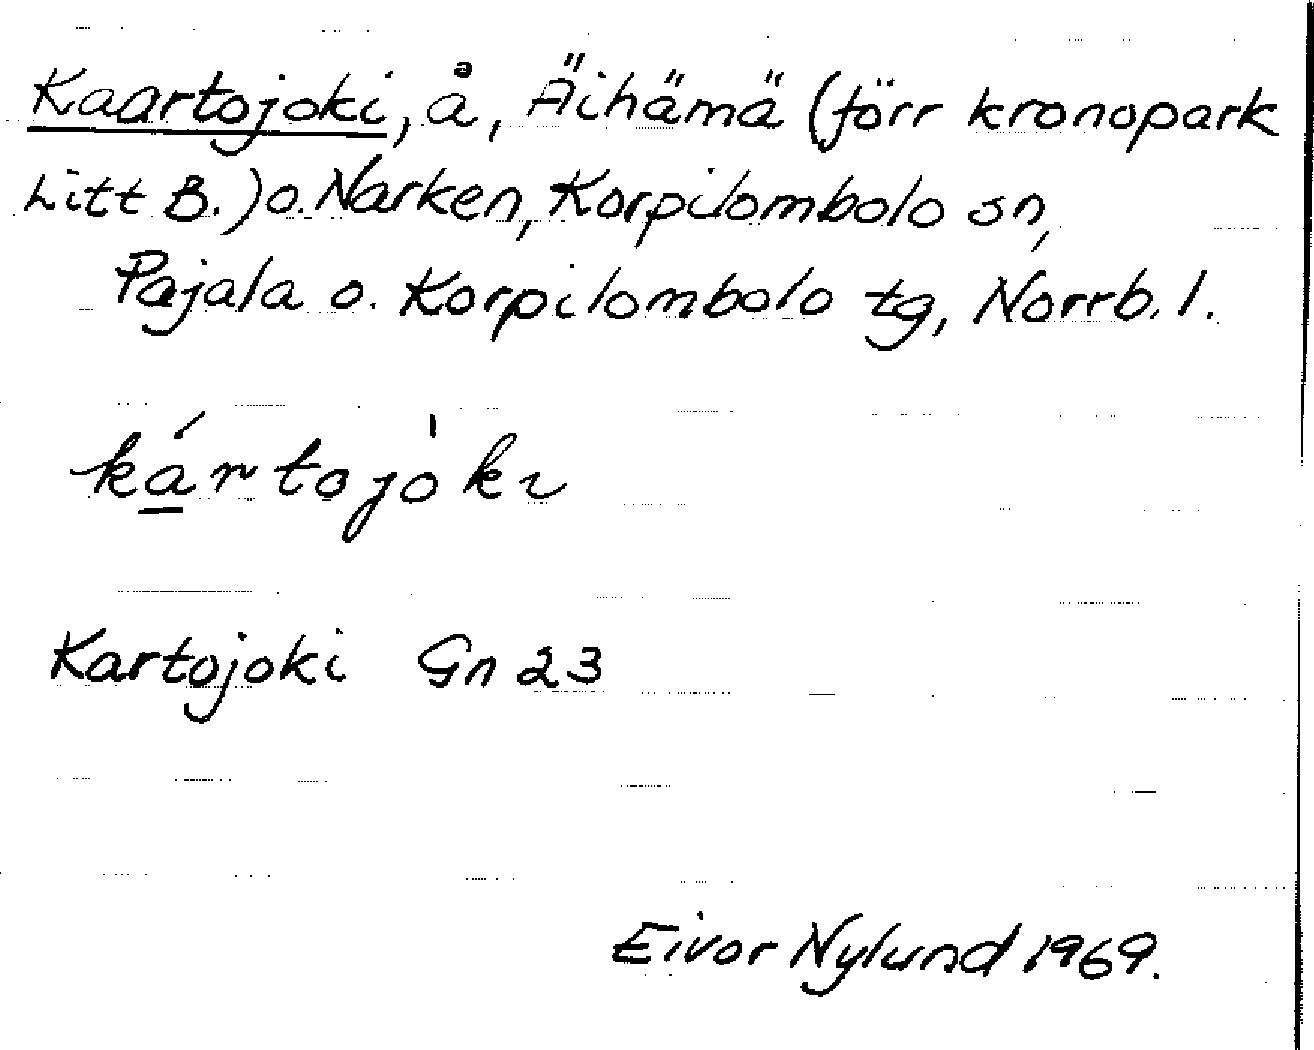 Kaartojoki, å, Äihämä (förr kronopark
Litt B.) o. Narken, Korpilombolo sn,
Pajala o. Korpilombolo tg, Norrb. l.
ká̱rtojo̍kɩ
Kartojoki Gn 23
Eivor Nylund 1969.